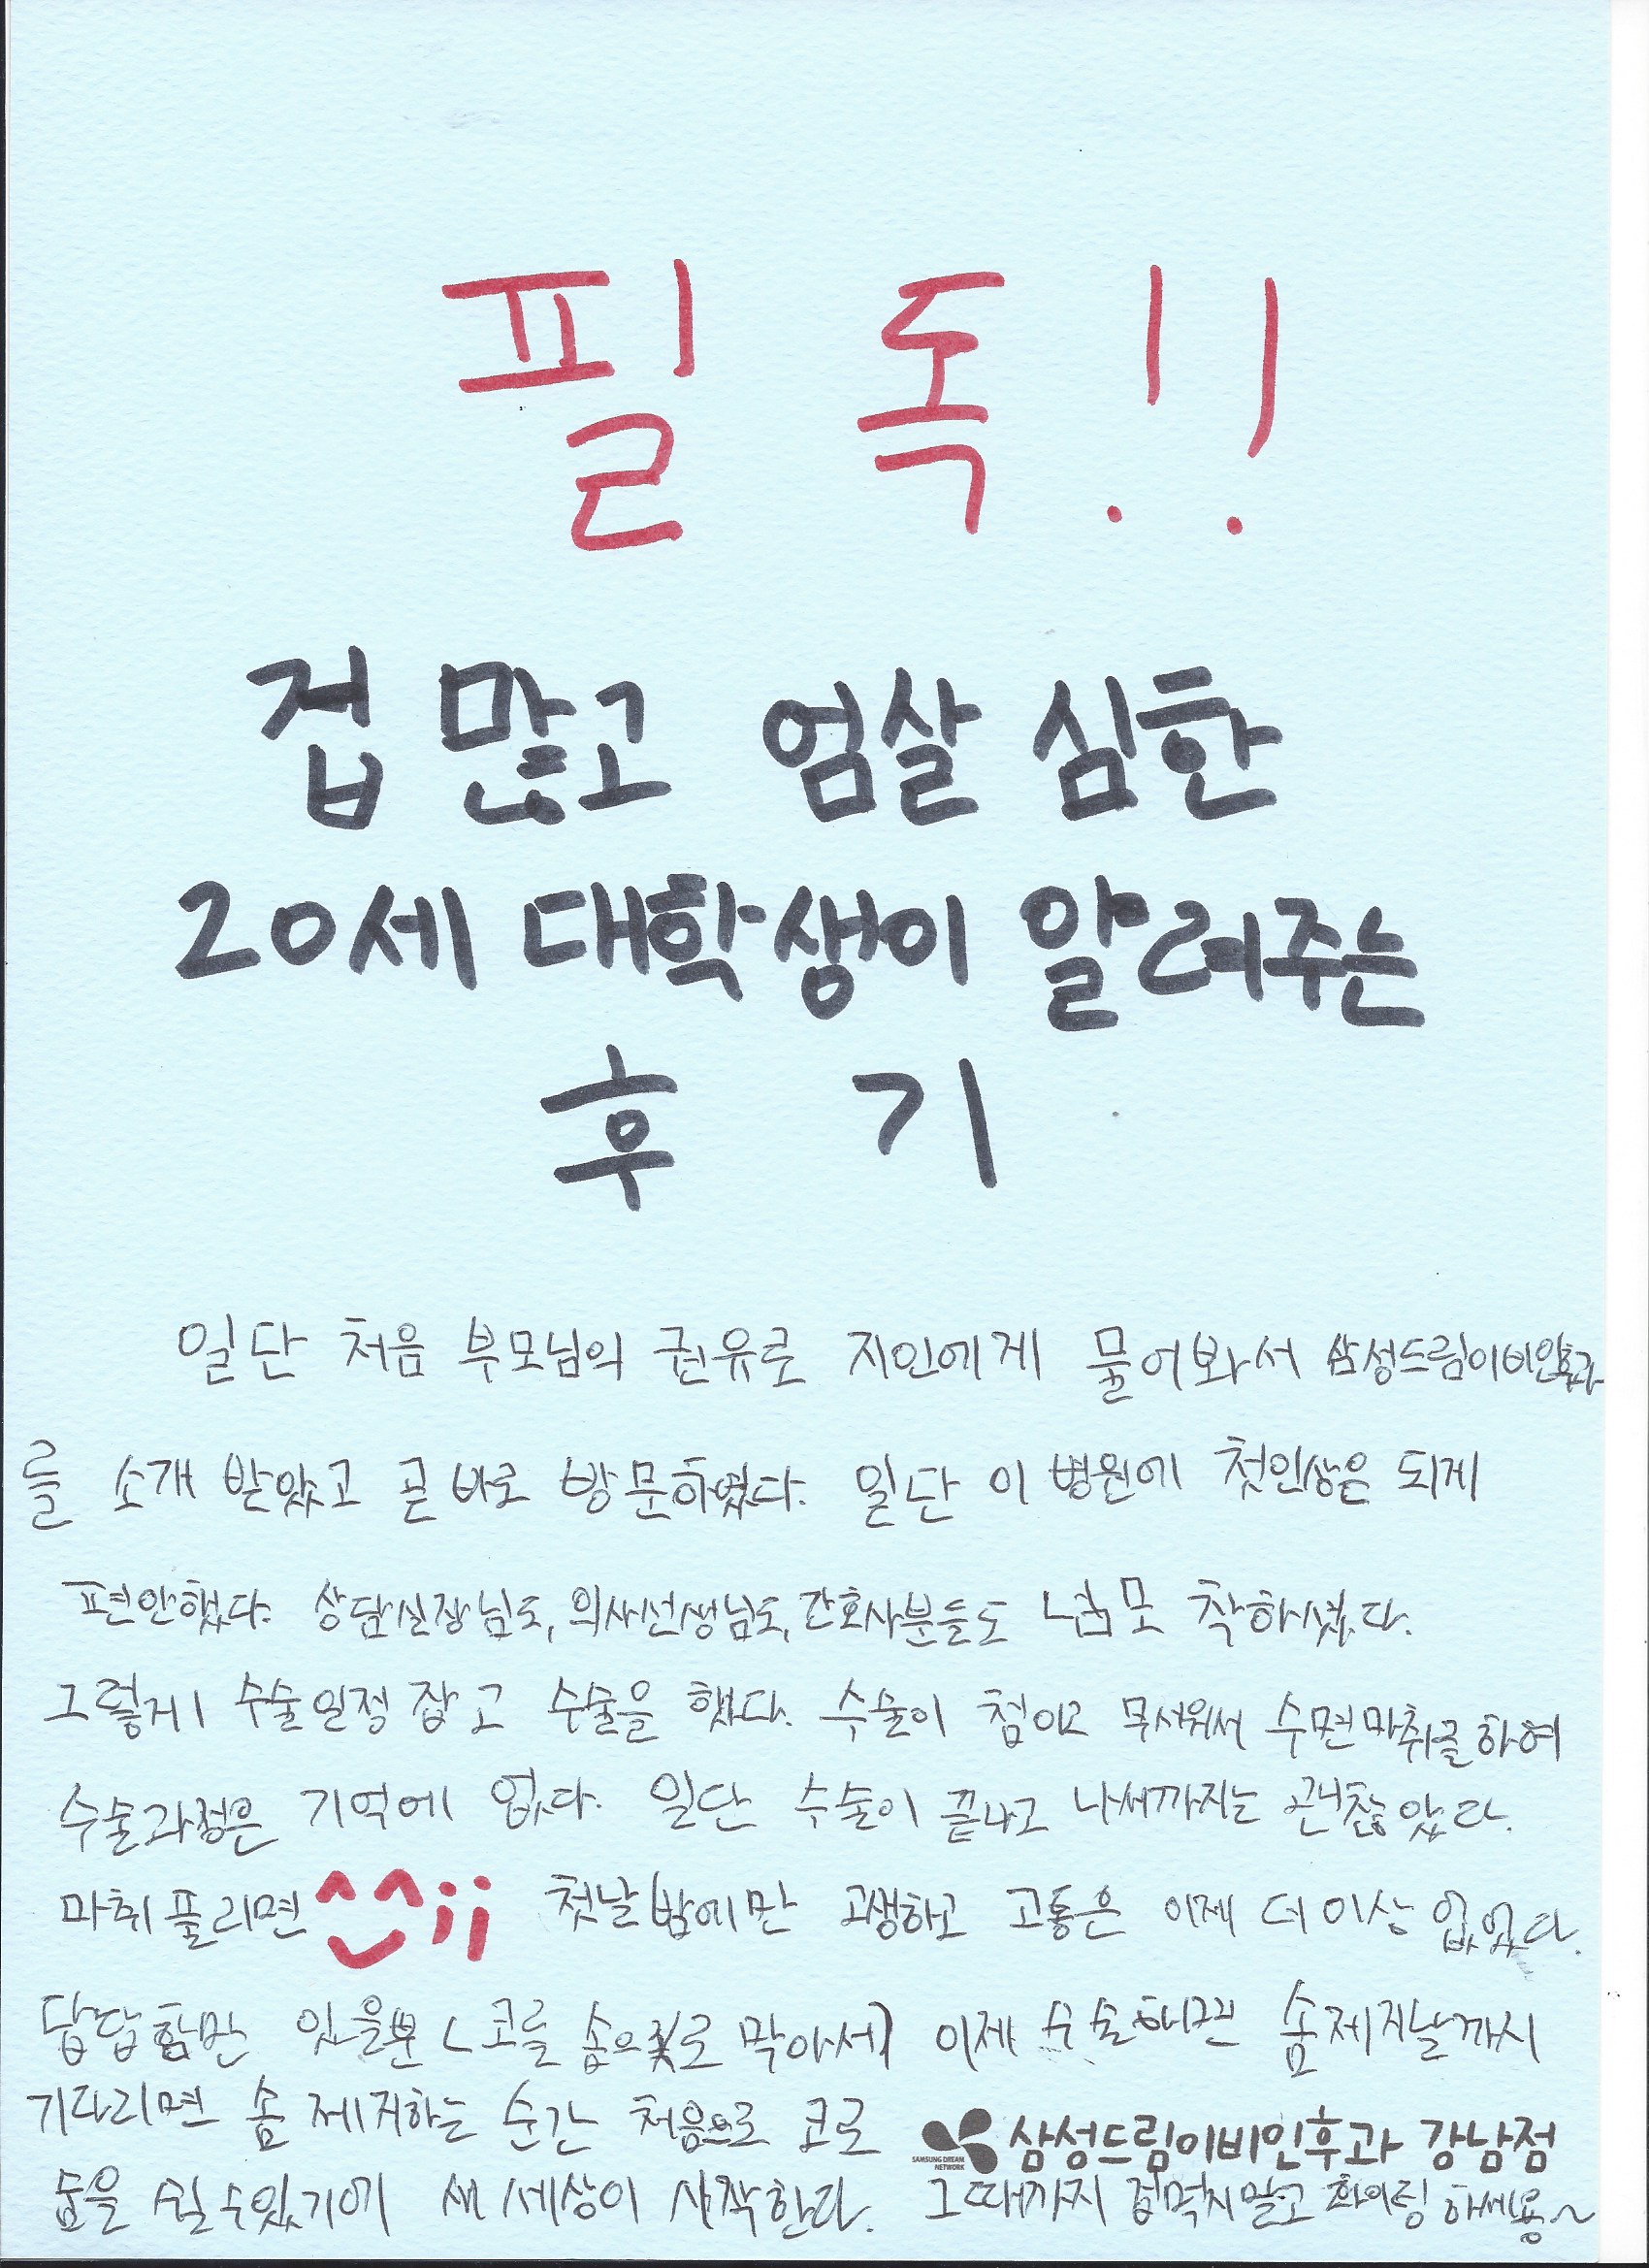 필독!!
겁 많고 엄살 심한
20세 대학생이 알려주는
후기
일단 처음 부모님의 권유로 지인에게 물어봐서 삼성드림이비인후과
를 소개 받았고 곧 바로 방문하였다. 일단 이 병원에 첫인상은 되게
편안했다. 상담실장님도, 의사선생님도, 간호사분들도 너무 착하셨다.
그렇게 수술일정 잡고 수술을 했다. 수술이 첨이고 무서워서 수면마취를 하여
수술과정은 기억에 없다. 일단 수술이 끝나고 나서까지는 괜찮았다.
마취 풀리면 ^^;; 첫날 밤에만 고생하고 고통은 이제 더 이상 없었다.
답답함만 있을뿐 코를 솜으로 막아서 이제 수술하고 솜제거날까지
기다리면 솜 제거하는 순간 처음으로 코로
숨을 쉴수있기에 새 세상이 시작한다. 그때까지 겁먹지말고 화이팅 하세용~
SAMSUNG DREAM NETWORK 삼성드림이비인후과 강남점